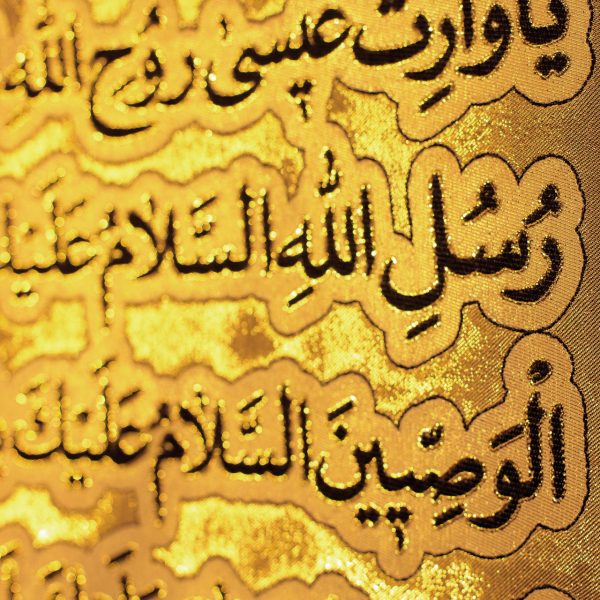 يا وارِثَ عيسى رُوحِ اللهِ
رُسُلِ اللهِ السَّلامُ عَلَيكَ
الْوَصِيّينَ السَّلامُ عَلَيكَ